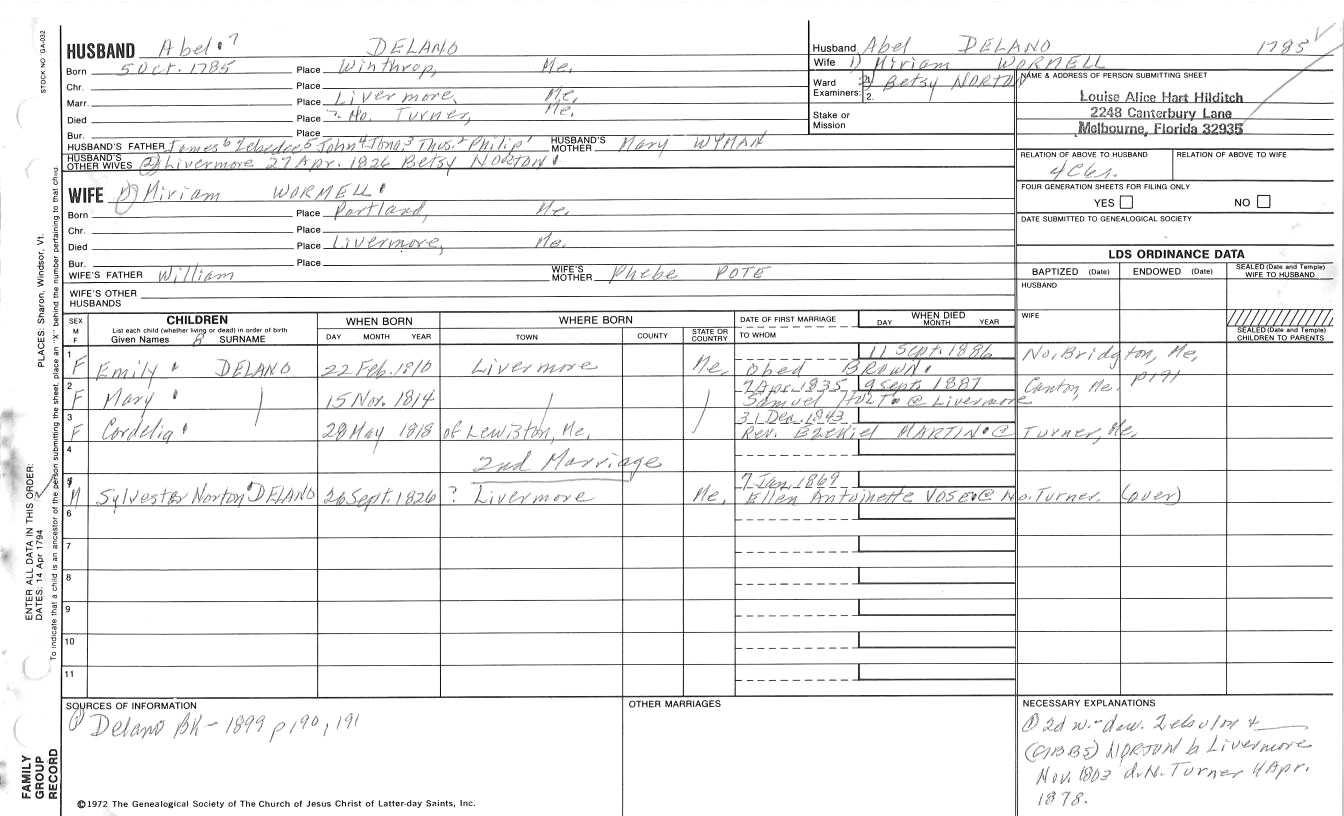 STOCK NO GA-032
HUSBAND Abel 7 DELANO
Born 5 Oct. 1785 Place Winthrop, Me.
Chr. Place
Marr. Place Livermore, Me,
Died Place ? No. Turner, Me.
Bur. Place
HUSBAND'S FATHER James 6 Zebedee 5 John 4 Jona. 3 Thos. 2 Philip 1 HUSBAND'S MOTHER Mary WYMAN
HUSBAND'S OTHER WIVES (2) Livermore 27 Apr. 1826 Betsy NORTON
WIFE 1) Miriam WORMELL
Born Place Portland, Me.
Chr. Place
Died Place Livermore, Me.
Bur. Place
WIFE'S FATHER William WIFE'S MOTHER Phebe POTE
WIFE'S OTHER HUSBANDS
Husband Abel DELANO 1785
Wife 1) Miriam WORMELL
2) Betsy NORTON
Ward
Examiners: 1. 2.
Stake or Mission
NAME & ADDRESS OF PERSON SUBMITTING SHEET
Louise Alice Hart Hilditch
2248 Canterbury Lane
Melbourne, Florida 32935
RELATION OF ABOVE TO HUSBAND RELATION OF ABOVE TO WIFE
FOUR GENERATION SHEETS FOR FILING ONLY
YES NO
DATE SUBMITTED TO GENEALOGICAL SOCIETY
LDS ORDINANCE DATA
BAPTIZED (Date) ENDOWED (Date) SEALED (Date and Temple) WIFE TO HUSBAND
HUSBAND
WIFE
SEALED (Date and Temple) CHILDREN TO PARENTS
SEX M F
CHILDREN
List each child (whether living or dead) in order of birth
Given Names 8 SURNAME
WHEN BORN
DAY MONTH YEAR
WHERE BORN
TOWN COUNTY STATE OR COUNTRY
DATE OF FIRST MARRIAGE
TO WHOM
WHEN DIED
DAY MONTH YEAR
1 11 Sept. 1886
F Emily DELANO 22 Feb. 1810 Livermore Me, Obed BROWN No. Bridgton, Me,
2 7 Apr. 1835 9 Sept 1887 Canton, Me. p191
F Mary 15 Nov. 1814 Samuel HOLT @ Livermore
3 31 Dec. 1843
F Cordelia 28 May 1818 of Lewiston, Me, Rev. Ezekiel MARTIN @ Turner, Me,
4 2nd Marriage
5 7 Jan. 1869
M Sylvester Norton DELANO 26 Sept. 1826 ? Livermore Me, Ellen Antoinette VOSE @ No. Turner. (over)
6
7
8
9
10
11
SOURCES OF INFORMATION
① Delano BK - 1899 p190, 191
OTHER MARRIAGES
NECESSARY EXPLANATIONS
① 2d w. - dau. Zebulon &
(GIBBS) NORTON b Livermore
Nov. 1803 d. N. Turner 4 Apr.
1878.
©1972 The Genealogical Society of The Church of Jesus Christ of Latter-day Saints, Inc.
FAMILY GROUP RECORD
ENTER ALL DATA IN THIS ORDER:
DATES: 14 Apr 1794 PLACES: Sharon, Windsor, Vt.
To indicate that a child is an ancestor of the person submitting the sheet, place an "X" behind the number pertaining to that child